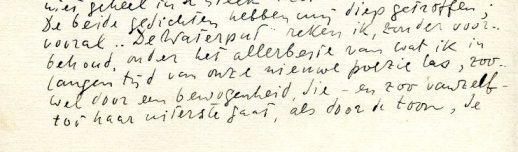 niet geheel in de steek
De beide gedichten hebben mij diep getroffen;
vooral .. De Waterput reken ik, zonder voor-
behoud, onder het allerbeste van wat ik in
langen tijd van onze nieuwe poëzie las, zoo-
wel door een bewogenheid, die - en zoo vanzelf -
tot haar uiterste gaat, als door de toon, de